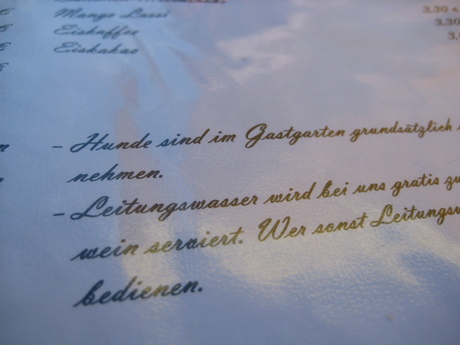 Mango Lassi 3,30 €
Eiskaffee 3,30
Eiskakao 3,
- Hunde sind im Gastgarten grundsätzlich
nehmen.
- Leitungswasser wird bei uns gratis zu
wein serviert. Wer sonst Leitungsw
bedienen.